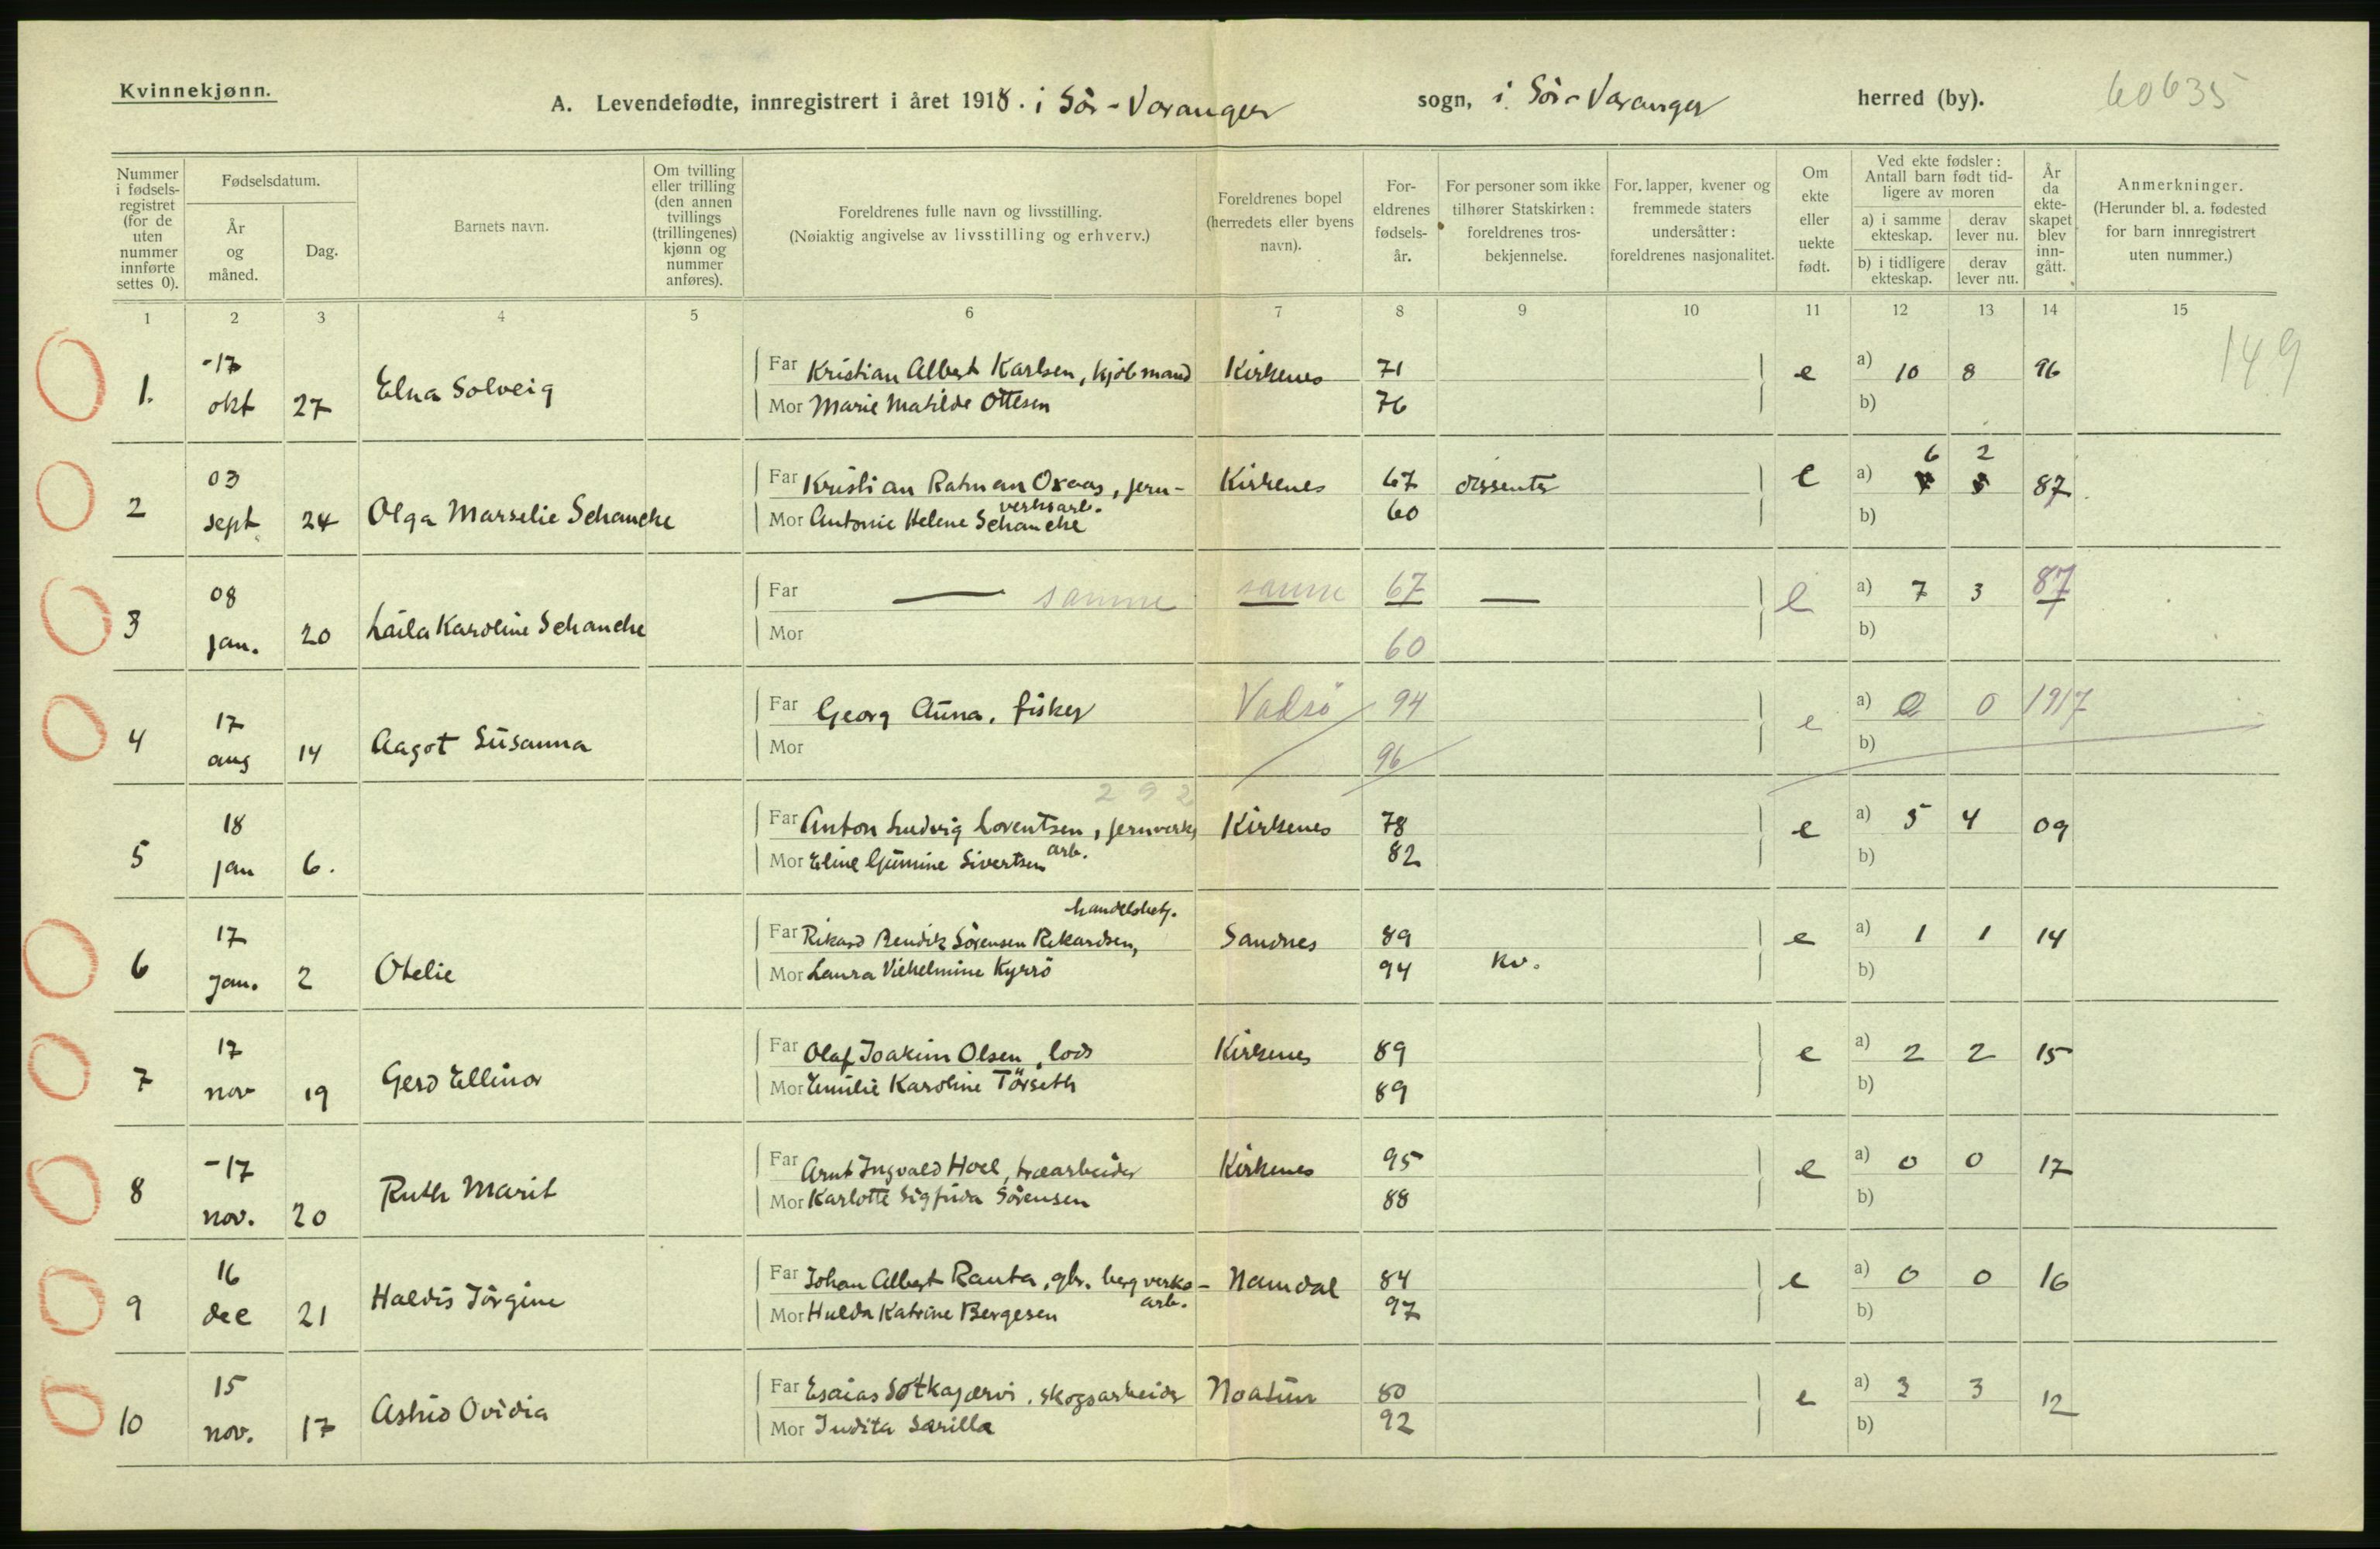 Kvinnekjønn.
A. Levendefødte, innregistrert i året 1918. i Sör-Varanger sogn, i Sör-Varanger herred (by). 60635
Nummer i fødsels-registret (for de uten nummer innførte settes 0).
Fødselsdatum.
År og måned.
Dag.
Barnets navn.
Om tvilling eller trilling (den annen tvillings (trillingenes) kjønn og nummer anføres).
Foreldrenes fulle navn og livsstilling.
(Nøiaktig angivelse av livsstilling og erhverv.)
Foreldrenes bopel (herredets eller byens navn).
For-eldrenes fødsels-år.
For personer som ikke tilhører Statskirken: foreldrenes tros-bekjennelse.
For lapper, kvener og fremmede staters undersåtter: foreldrenes nasjonalitet.
Om ekte eller uekte født.
Ved ekte fødsler: Antall barn født tid-ligere av moren
a) i samme ekteskap. derav lever nu.
b) i tidligere ekteskap. derav lever nu.
År da ekte-skapet blev inn-gått.
Anmerkninger.
(Herunder bl. a. fødested for barn innregistrert uten nummer.)
1 2 3 4 5 6 7 8 9 10 11 12 13 14 15
149
1. -17 okt 27 Elna Solveig
Far Kristian Albert Karlsen, kjöbmand Kirkenes 71 e a) 10 8 96
Mor Marie Matilde Ottesen 76 b)
2 03 sept. 24 Olga Marselie Schanche
6 2
Far Kristian Ratman Oxaas, jern-verksarb. Kirkenes 67 dissenter e a) 87
Mor Antonie Helene Schanche 60 b)
3 08 jan. 20 Laila Karoline Schanche
Far — samme samme 67 — e a) 7 3 87
Mor 60 b)
4 17 aug 14 Aagot Susanna
Far Georg Auna, fisker Vadsö 94 e a) 0 0 1917
Mor 96 b)
292
5 18 jan 6.
Far Anton Ludvig Lorentsen, jernverks arb. Kirkenes 78 e a) 5 4 09
Mor Eline Gumine Sivertsen 82 b)
6 17 Jan. 2 Otelie
handelsbetj.
Far Rikard Bendik Sörensen Rikardsen, Sandnes 89 e a) 1 1 14
Mor Laura Vilhelmine Kyrrö 94 kv. b)
7 17 nov 19 Gerd Ellinor
Far Olaf Joakim Olsen, lods Kirkenes 89 e a) 2 2 15
Mor Emilie Karoline Törseth 89 b)
8 -17 nov. 20 Ruth Marit
Far Arnt Ingvald Hoel, træarbeider Kirkenes 95 e a) 0 0 17
Mor Karlotte Sigfrida Sörensen 88 b)
9 16 dec 21 Haldis Jörgine
Far Johan Albert Rauta, gbr. bergverks-arb. Namdal 84 e a) 0 0 16
Mor Hulda Katrine Bergesen 97 b)
10 15 nov. 17 Astrid Ovidia
Far Esaias Sotkajærvi, skogsarbeider Noatun 80 e a) 3 3 12
Mor Judita Sarilla 92 b)